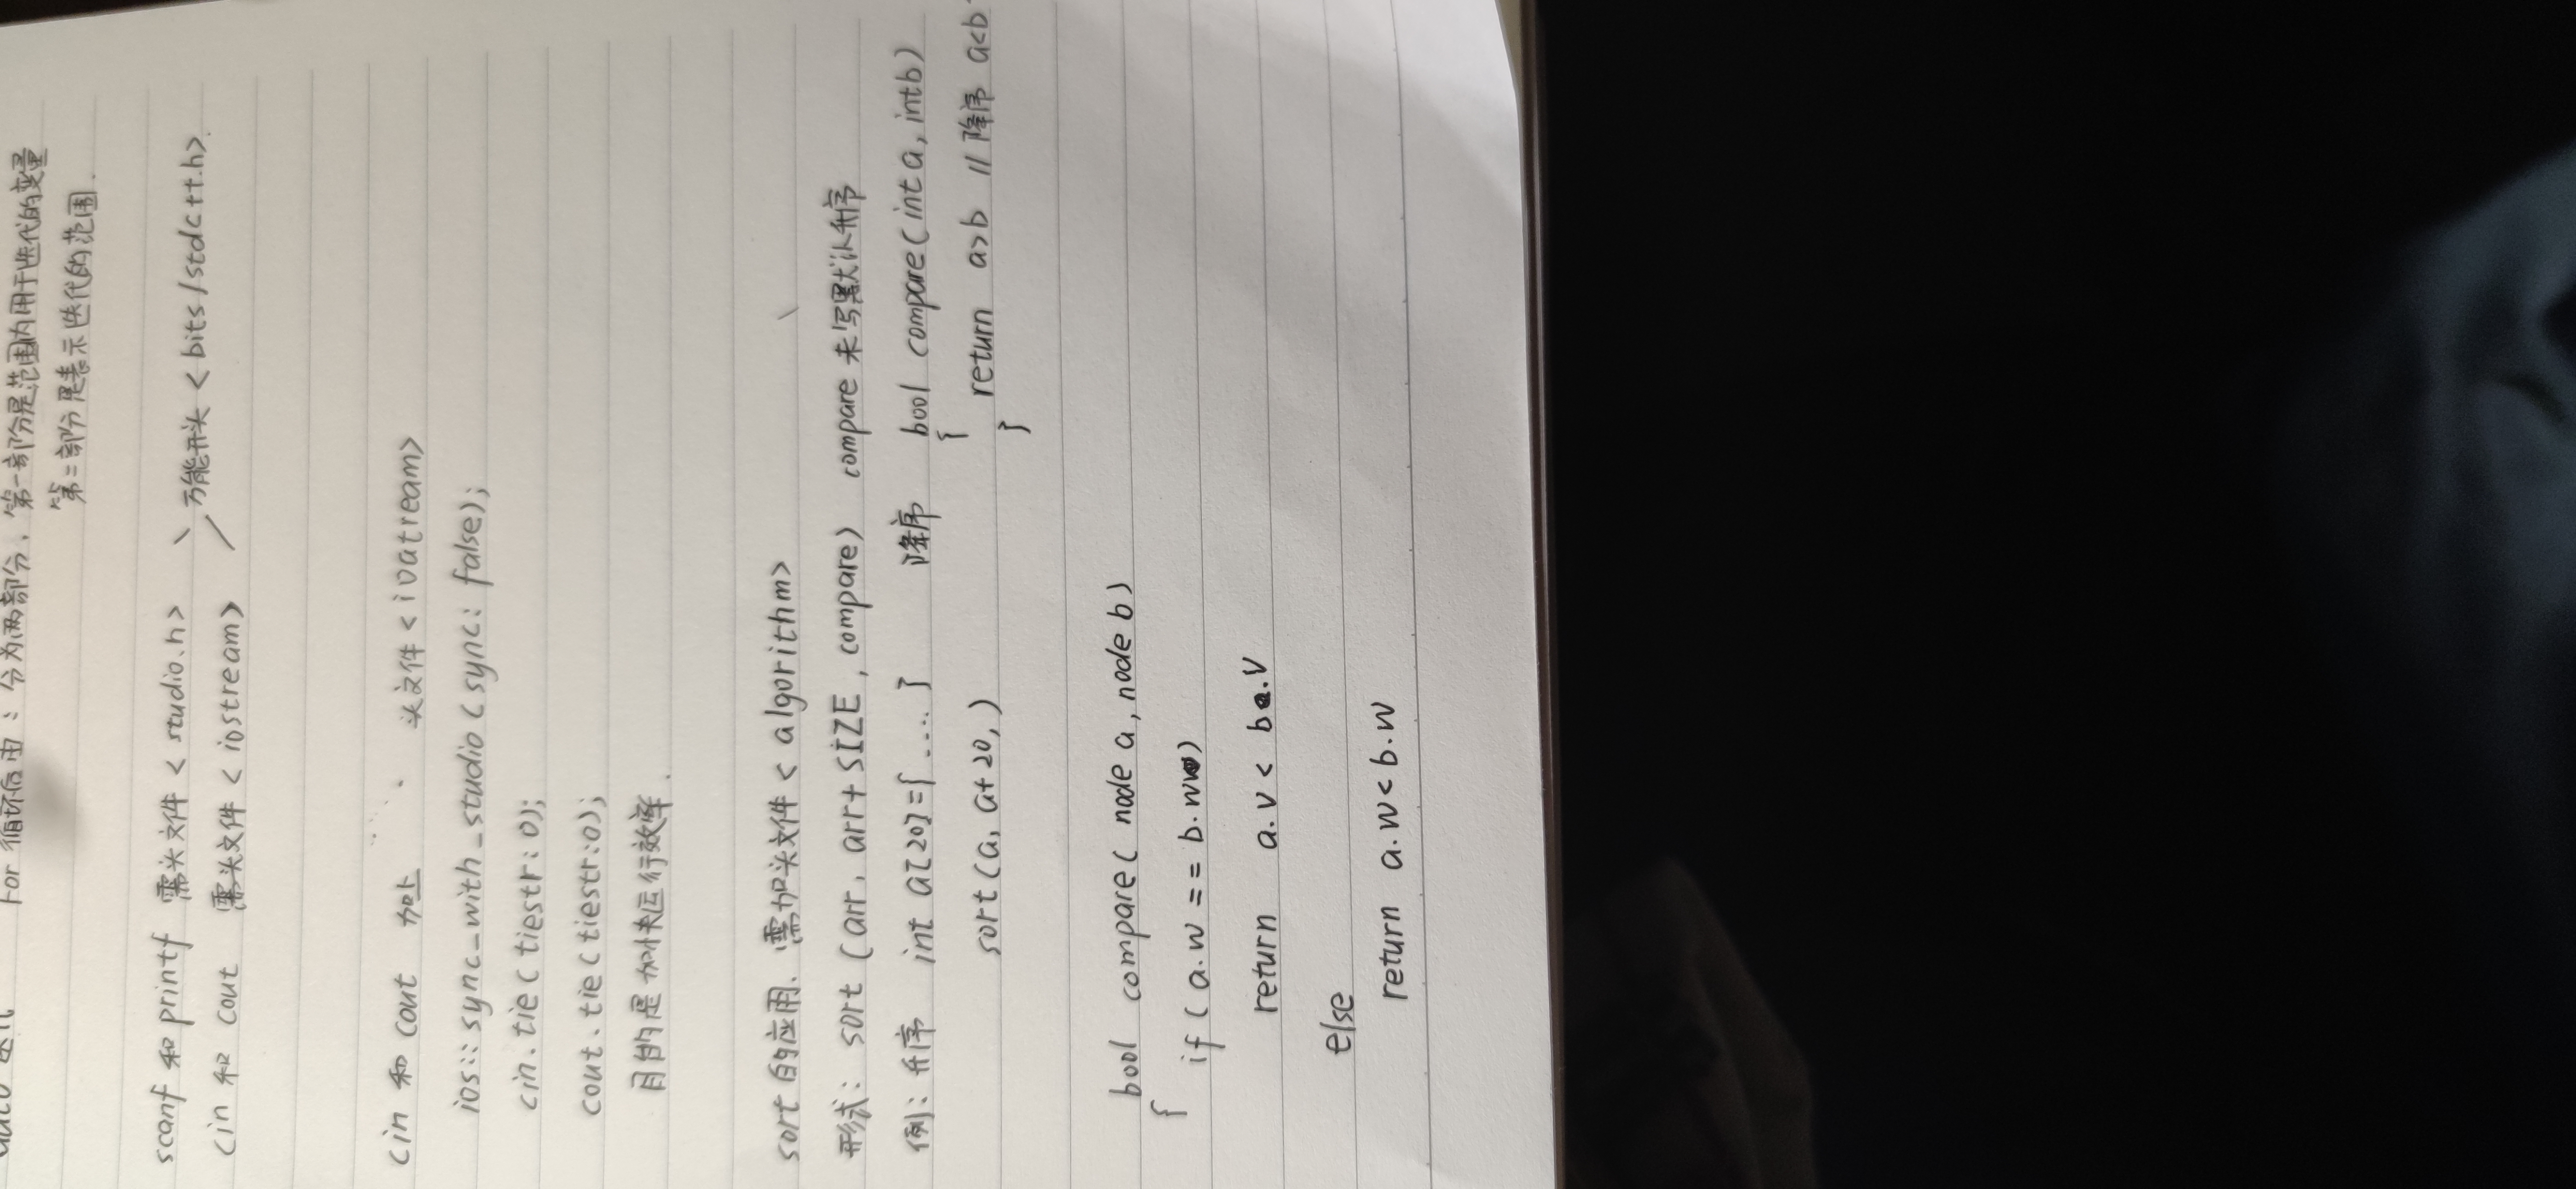 for 循环后由：分为两部分，第一部分是范围内用于迭代的变量
第二部分是表示迭代的范围.
scanf 和 printf 需头文件 <studio.h>
万能开头 <bits/stdc++.h>.
cin 和 cout 需头文件 <iostream>
cin 和 cout 加上 头文件 <ioatream>
ios::sync_with_studio(sync: false);
cin.tie(tiestr: 0);
cout.tie(tiestr:0);
目的是加快运行效率.
sort 的应用. 需加头文件 < algorithm>
形式: sort (arr, arr+SIZE, compare) compare 未写默认升序
例: 升序 int a[20]={....} 降序 bool compare(int a, int b)
{
sort(a, a+20,) return a>b // 降序 a<b
}
bool compare( node a, node b)
{
if (a.w == = b.w)
return a.v < b.v
else
return a.w < b.w